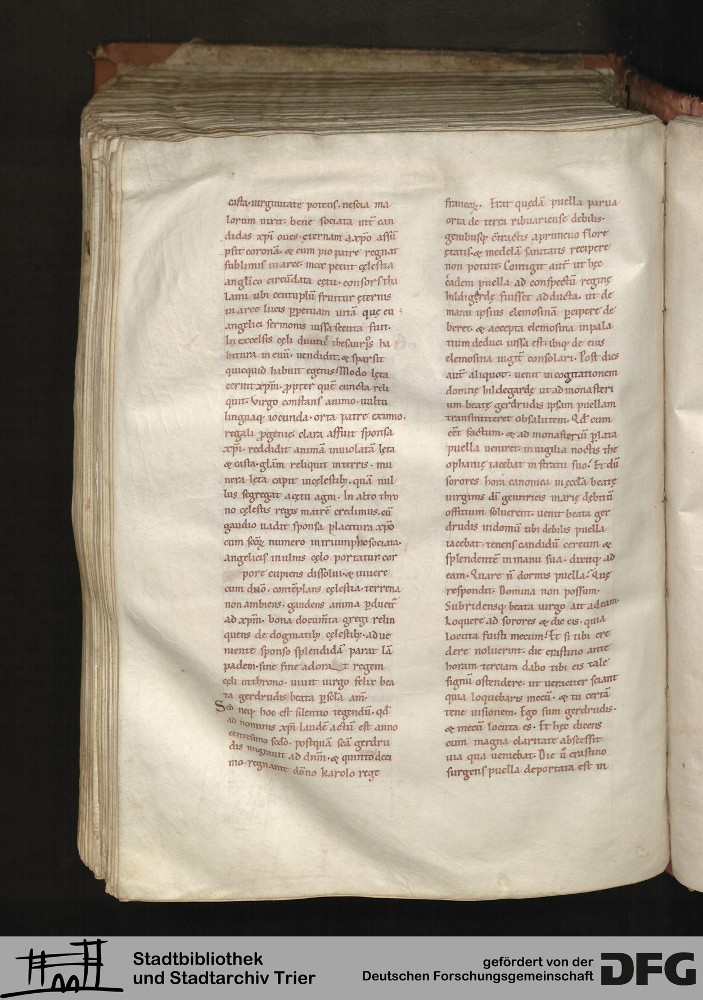 casta uirginitate potens. nescia ma
lorum uixit. bene sociata int̄ can
didas xp̄i oues. eternam a xp̄o assū
psit coronā. & cum pio patre regnat
sublimis in arce. mox petiit celestia
anglico circūdata cetu. consors tha
lami ubi centuplū fruitur eternis
in arce lucis ꝑpetuam uitā. que eu
angelici sermonis iussa secuta fuit.
In excelsis celi diuitiis thesauris ha
bitura in euū. uendidit. & sparsit
quicquid habuit egenis. Modo leta
cernit xp̄m. ꝓpter quē cuncta reli
quit. uirgo constans animo. uultu
linguaq; iocunda. orta patre eximio.
regali ꝓgenie. clara assūit sponsa
xp̄i. reddidit animā inuiolatā leta
& casta. glām reliquit in terris. mu
nera leta capit in celestib; quā nul
lus segregat a cetu agni. In alto thro
no celestis regis matrē credimus. cū
gaudio uadit sponsa placitura xp̄o
cum scōꝝ numero in triumpho sociata.
angelicis in ulnis celo portatur. cor
pore cupiens dissolui. & uiuere
cum dn̄o. contēplans celestia. terrena
non ambiens. gaudens anima ꝑducit̄
ad xp̄m. bona documīta gregi relin
quens de dogmatib; celestib; adue
niente sponso splendidā parat lā
padem. sine fine adorat regem
celi in throno. uiuit uirgo felix bea
ta gerdrudis beata ꝑ scła. am̄.
Sed neq; hoc est silentio tegendū. qd̄
ad nominis xp̄i laudē actū est. anno
centesimo scdō. postquā scā gerdru
dis migrauit ad dn̄m. & quinto deci
mo. regnante dōno karolo rege
francoꝝ. Erat quedā puella parua
orta de terra ribuariense debilis.
genibusq; c̄tractis a primeuo flore
etatis. & medelā sanitatis recipere
non potuit. Contigit aut̄ ut hec
eadem puella ad conspectū regine
hildigerde fuisset adducta. ut de
manu ipsius elemosinā ꝑcipere de
beret. & accepta elemosina in pala
tium deduci iussa est. ibiq; de eius
elemosina iugit̄ consolari. Post dies
aut̄ aliquot. uenit in cogitationem
domine hildegarde ut ad monasteri
um beate gerdrudis ipsam puellam
transmitteret ob salutem. Qd̄ cum
eēt factum. & ad monasteriū ꝑlata
puella ueniret. in uigilia noctis the
ophanie iacebat in stratu suo. Et dū
sorores hora canonica in eccla beate
uirginis dī genitricis marie debitū
offitium soluerent. uenit beata ger
drudis in domū ubi debilis puella
iacebat. tenens candidū cereum &
splendentē in manu sua. dixitq; ad
eam. Quare n̄ dormis puella. Que
respondit. Domina non possum.
Subridensq; beata uirgo ait ad eam.
Loquere ad sorores & dic eis. quia
locuta fuisti mecum. Et si tibi cre
dere noluerint. die crastino ante
horam terciam dabo tibi eis tale
signū ostendere. ut ueraciter sciant
quia loquebaris mecū. & tu certā
tene uisionem. Ego sum gerdrudis.
& mecū locuta es. Et hec dicens
cum magna claritate abscessit
uia qua ueniebat. Die ū crastino
surgens puella deportata est in
Stadtbibliothek
und Stadtarchiv Trier
gefördert von der
Deutschen Forschungsgemeinschaft
DFG